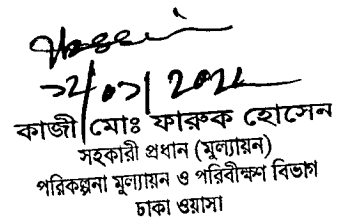 কাজী মোঃ ফারুক হোসেন
সহকারী প্রধান (মূল্যায়ন)
পরিকল্পনা মূল্যায়ন ও পরিবীক্ষণ বিভাগ
ঢাকা ওয়াসা